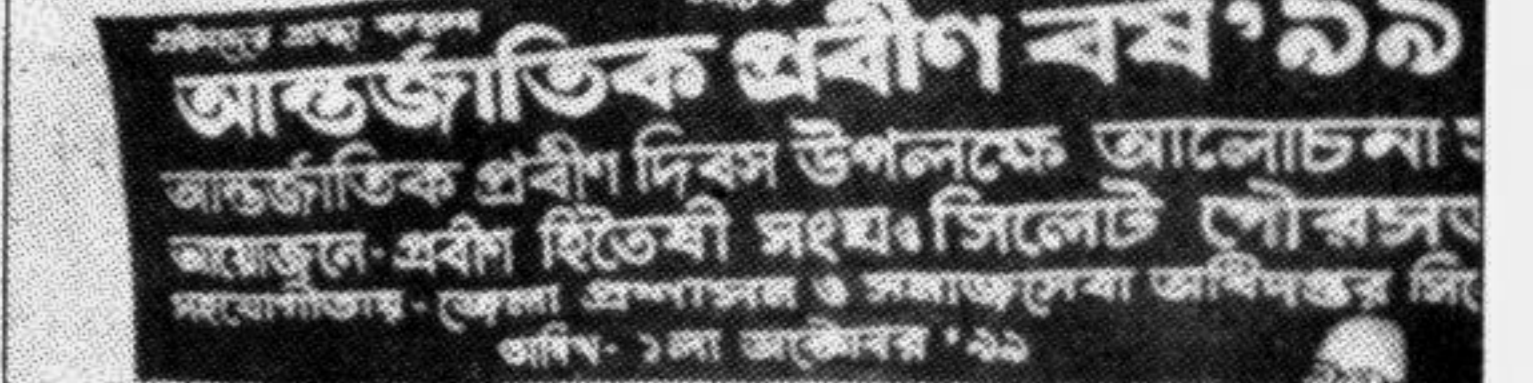 আন্তর্জাতিক প্রবীণ বর্ষ '৯৯
আন্তর্জাতিক প্রবীণ দিবস উপলক্ষে আলোচনা
আয়োজনে-প্রবীণ হিতৈষী সংঘ ও সিলেট পৌরসভ
সহযোগীতায় - জেলা প্রশাসন ও সমাজসেবা অধিদপ্তর সিলে
তারিখ- ১লা অক্টোবর '৯৯